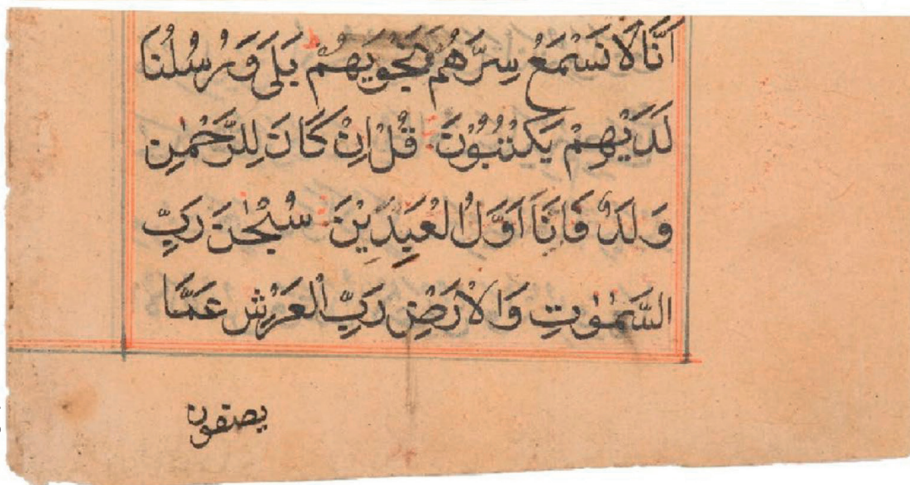 اَنَّا لَا نَسْمَعُ سِرَّهُمْ وَنَجْوٰیهُمْ بَلٰی وَرُسُلُنَا
لَدَیْهِمْ یَکْتُبُوْنَ قُلْ اِنْ کَانَ لِلرَّحْمٰنِ
وَلَدٌ فَاَنَا اَوَّلُ الْعٰبِدِیْنَ سُبْحٰنَ رَبِّ
السَّمٰوٰتِ وَالْاَرْضِ رَبِّ الْعَرْشِ عَمَّا
یصفون